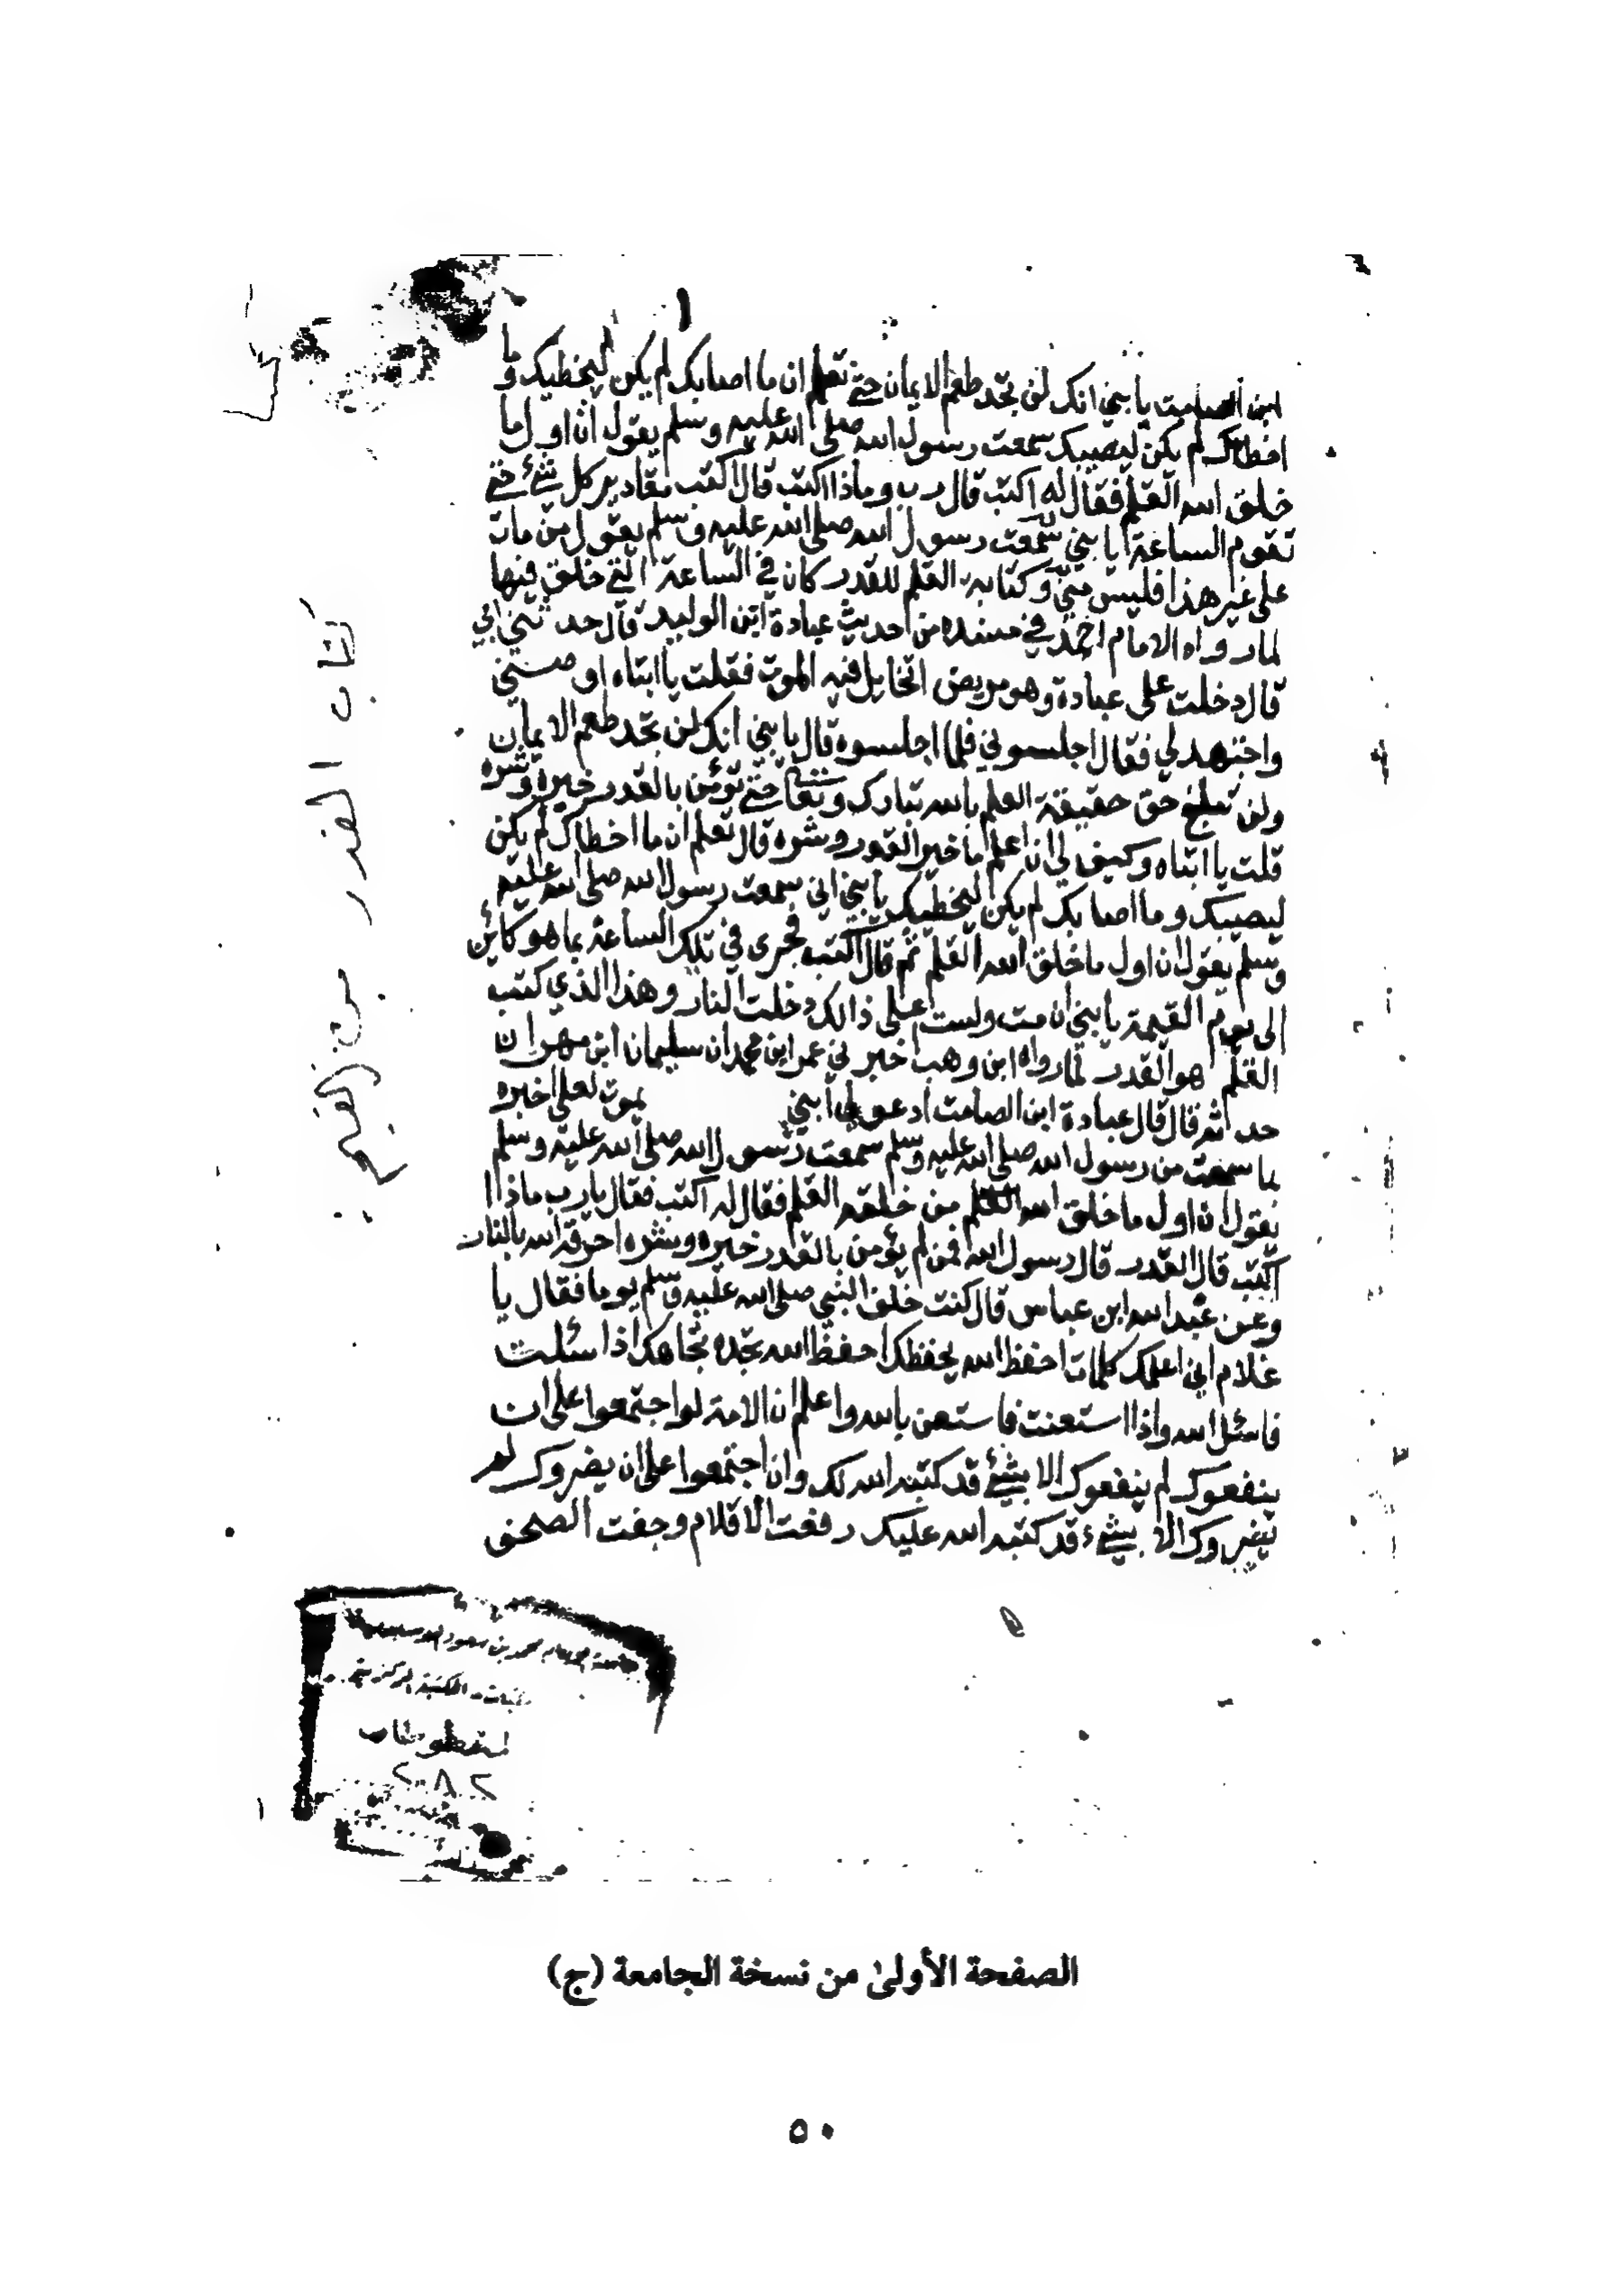 ١
ابن الصامت يا بني انك لن تجد طعم الايمان حتى تعلم ان ما اصابك لم يكن ليخطيك وما
اخطاك لم يكن ليصيبك سمعت رسول الله صلى الله عليه وسلم يقول ان اول ما
خلق الله القلم فقال له اكتب قال رب وماذا اكتب قال اكتب مقادير كل شئ حتى
تقوم الساعة يا بني سمعت رسول الله صلى الله عليه وسلم يقول من مات
على غير هذا فليس مني وكتابة القلم للقدر كان في الساعة التي خلق فيها
لما رواه الامام احمد في مسنده من احديث عبادة ابن الوليد قال حدثني ابي
قال دخلت على عبادة وهو مريض اتخايل فيه الموت فقلت يا ابتاه اوصني
واجتهد لي فقال اجلسوني فلما اجلسوه قال يا بني انك لن تجد طعم الايمان
ولن تبلغ حق حقيقة العلم بالله تبارك وتعا حتى تؤمن بالقدر خيره وشره
قلت يا ابتاه وكيف لي ان اعلم ما خير القدر وشره قال تعلم ان ما اخطاك لم يكن
ليصيبك وما اصابك لم يكن ليخطيك يا بني اني سمعت رسول الله صلى الله عليه
وسلم يقول ان اول ما خلق الله القلم ثم قال اكتب فجرى في تلك الساعة بما هو كائن
الى يوم القيمة يا بني ان مت ولست على ذالك دخلت النار وهذا الذي كتب
القلم هو القدر لما رواه ابن وهب خبرني عمر ابن محمد ان سليمان ابن مهران
حدثه قال قال عبادة ابن الصامت ادعو لي ابني يموت لعلي اخبره
بما سمعت من رسول الله صلى الله عليه وسلم سمعت رسول الله صلى الله عليه وسلم
يقول ان اول ما خلق الله القلم من خلقه القلم فقال له اكتب فقال يا رب ماذا ا
اكتب قال القدر قال رسول الله فمن لم يؤمن بالقدر خيره وشره احرقه الله بالنار
وعن عبد الله ابن عباس قال كنت خلف النبي صلى الله عليه وسلم يوما فقال يا
غلام اني اعلمك كلمات احفظ الله يحفظك احفظ الله تجده تجاهك اذا سئلت
فاسئل الله واذا استعنت فاستعن بالله واعلم ان الامة لو اجتمعوا على ان
ينفعوك لم ينفعوك الا بشئ قد كتبه الله لك وان اجتمعوا على ان يضروك لم
يضروك الا بشئ قد كتبه الله عليك رفعت الاقلام وجفت الصحف
كتاب القدر لابن القيم
محمد بن سعود
المكتبة المركزية
مخطوطات
٢٠٨٢
الصفحة الأولىٰ من نسخة الجامعة (ج)
٥٠